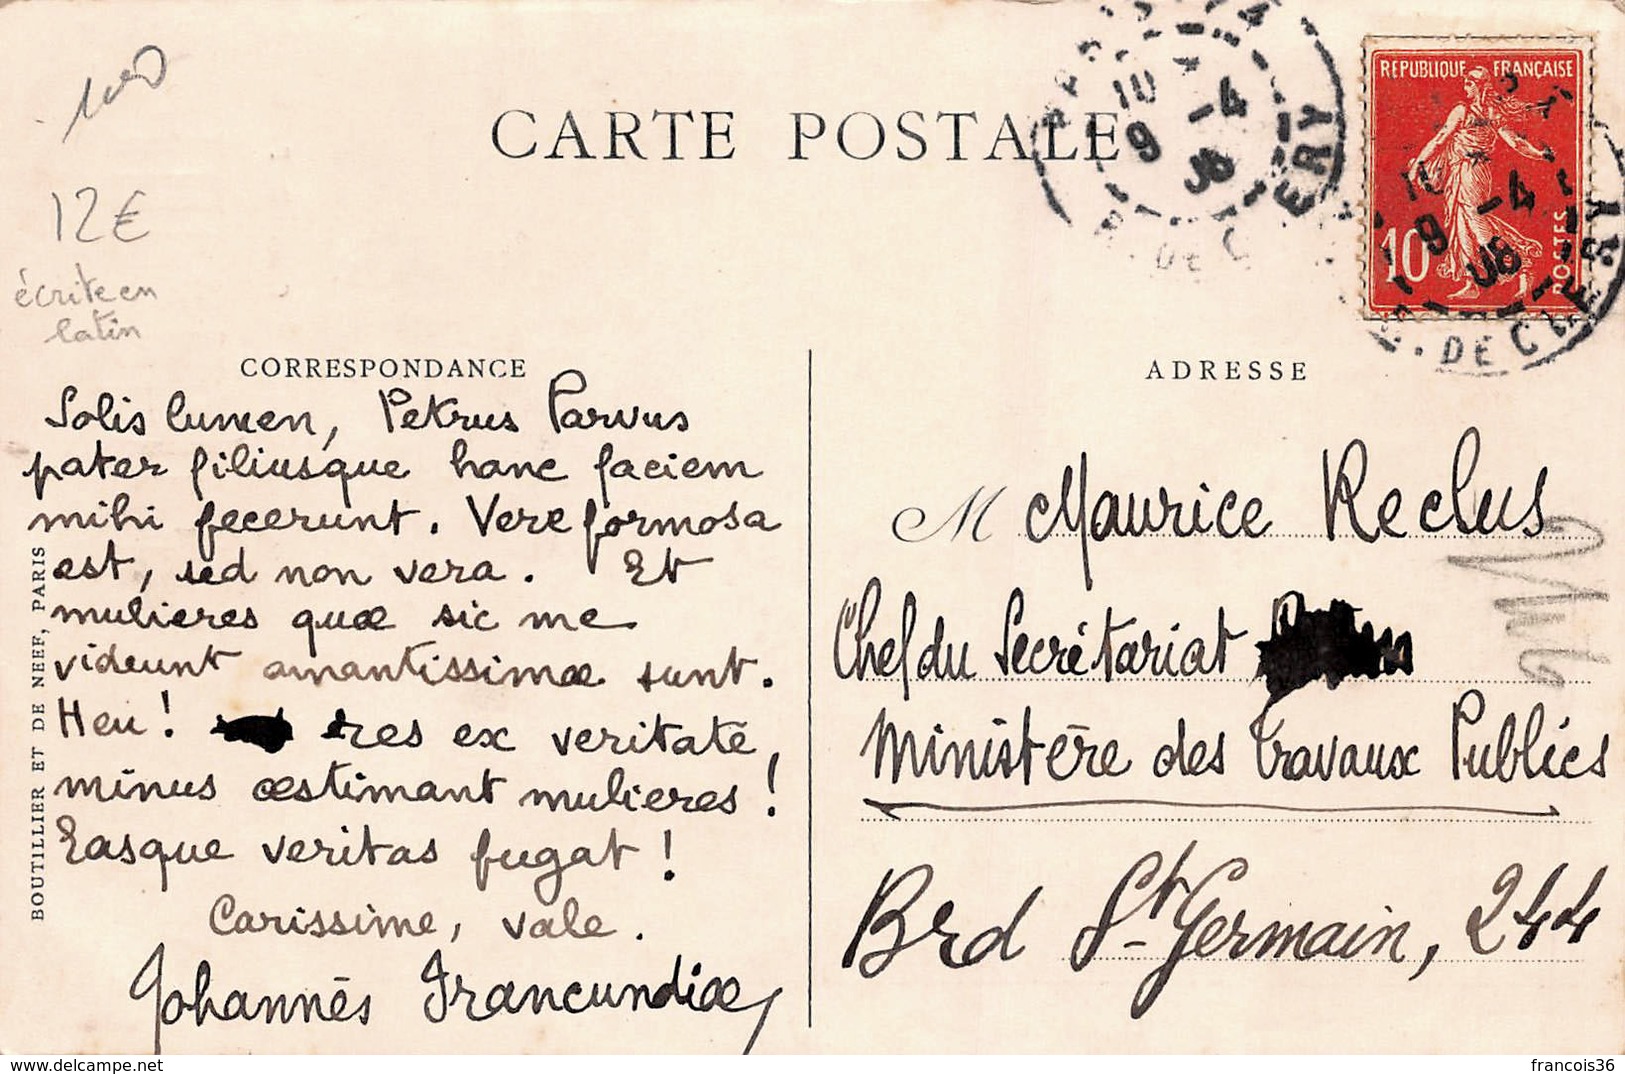 100
12€
écrite en
latin
CARTE POSTALE
RÉPUBLIQUE FRANÇAISE
10
POSTES
10
9 -4
08
R. DE CLERY
CORRESPONDANCE
Solis lumen, Petrus Parvus
pater filiusque hanc faciem
mihi fecerunt. Vere formosa
est, sed non vera. Et
mulieres quæ sic me
vident amantissimæ sunt.
Heu! res ex veritate,
minus æstimant mulieres!
Easque veritas fugat!
Carissime, vale.
Johannès Francundiæ
BOUTILLIER ET DE NEEF, PARIS
ADRESSE
M Maurice Reclus
Chef du Secrétariat
Ministère des Travaux Publics
Brd St-Germain, 244
francois36